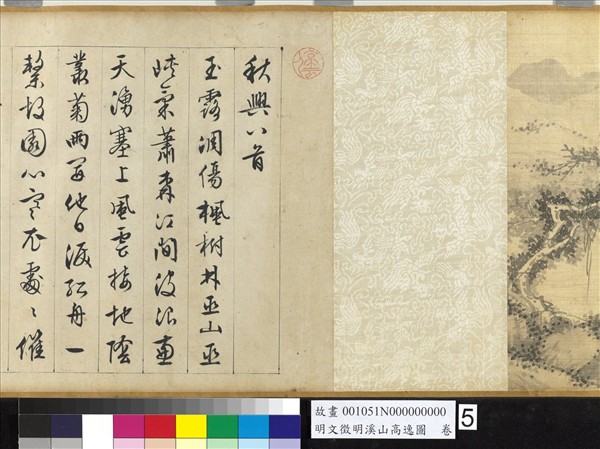 秋興八首
玉露凋傷楓樹林巫山巫
峽氣蕭森江間波浪兼
天湧塞上風雲接地陰
叢菊兩開他日淚孤舟一
繫故園心寒衣處〻催
故畫 001051N000000000
明文徵明溪山高逸圖 卷
5